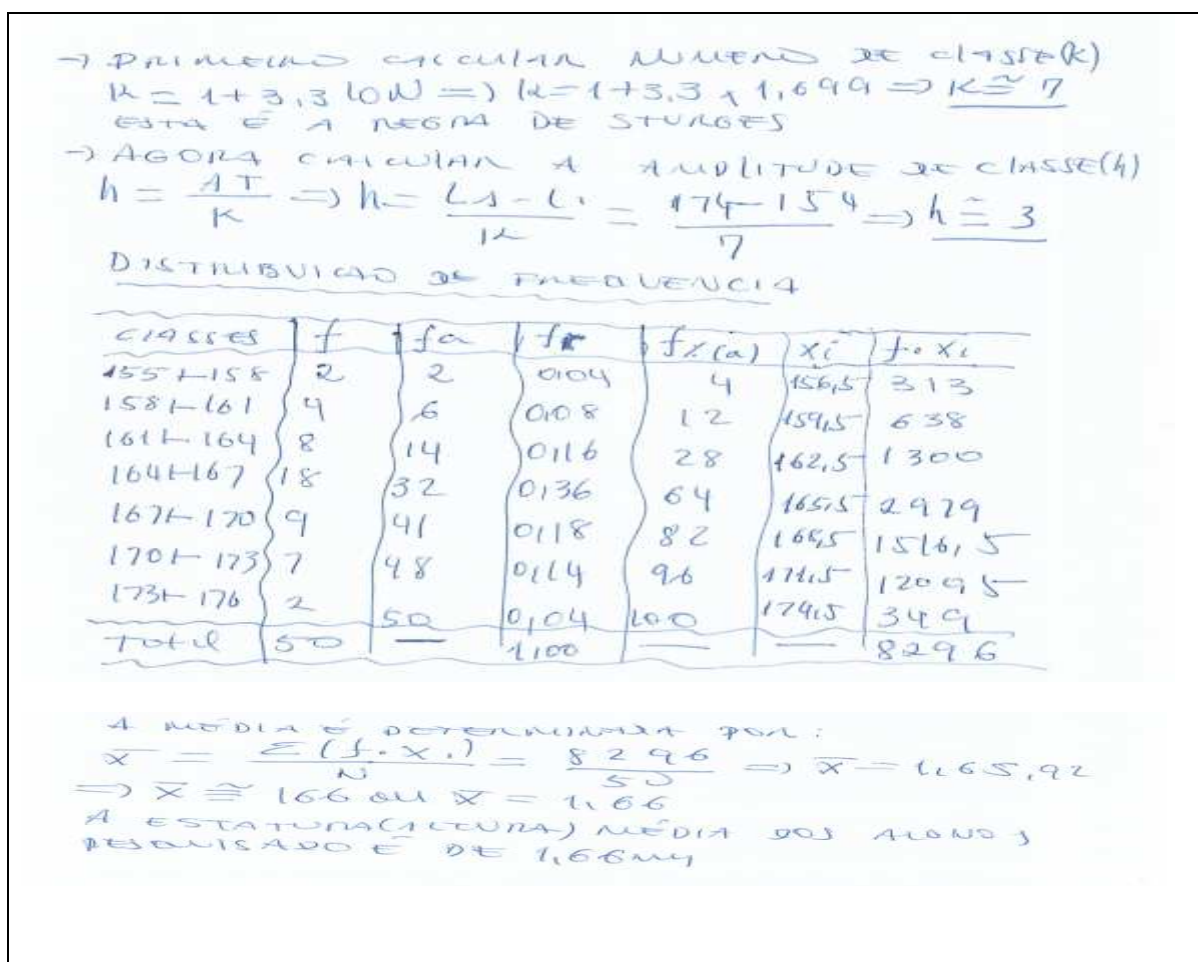 → PRIMEIRO CALCULAR NUMERO DE CLASSE(K)
K = 1+3,3 LON => K=1+3,3 x 1,699 => K ≅ 7
ESTA É A REGRA DE STURGES
→ AGORA CALCULAR A AMPLITUDE DE CLASSE(h)
h = AT/K => h = (Ls - Li)/K = (174-154)/7 => h ≅ 3
DISTRIBUICAO DE FREQUENCIA
CLASSES f fa fr f%(a) Xi f.Xi
155 ⊢ 158 2 2 0,04 4 156,5 313
158 ⊢ 161 4 6 0,08 12 159,5 638
161 ⊢ 164 8 14 0,16 28 162,5 1300
164 ⊢ 167 18 32 0,36 64 165,5 2979
167 ⊢ 170 9 41 0,18 82 168,5 1516,5
170 ⊢ 173 7 48 0,14 96 171,5 1200,5
173 ⊢ 176 2 50 0,04 100 174,5 349
Total 50 — 1,00 — — 8296
A MÉDIA É DETERMINADA POR:
x̄ = Σ(f.x.)/N = 8296/50 => x̄ = 1,65,92
=> x̄ ≅ 166 ou x̄ = 1,66
A ESTATURA(ALTURA) MÉDIA DOS ALUNOS
PESQUISADO É DE 1,66m